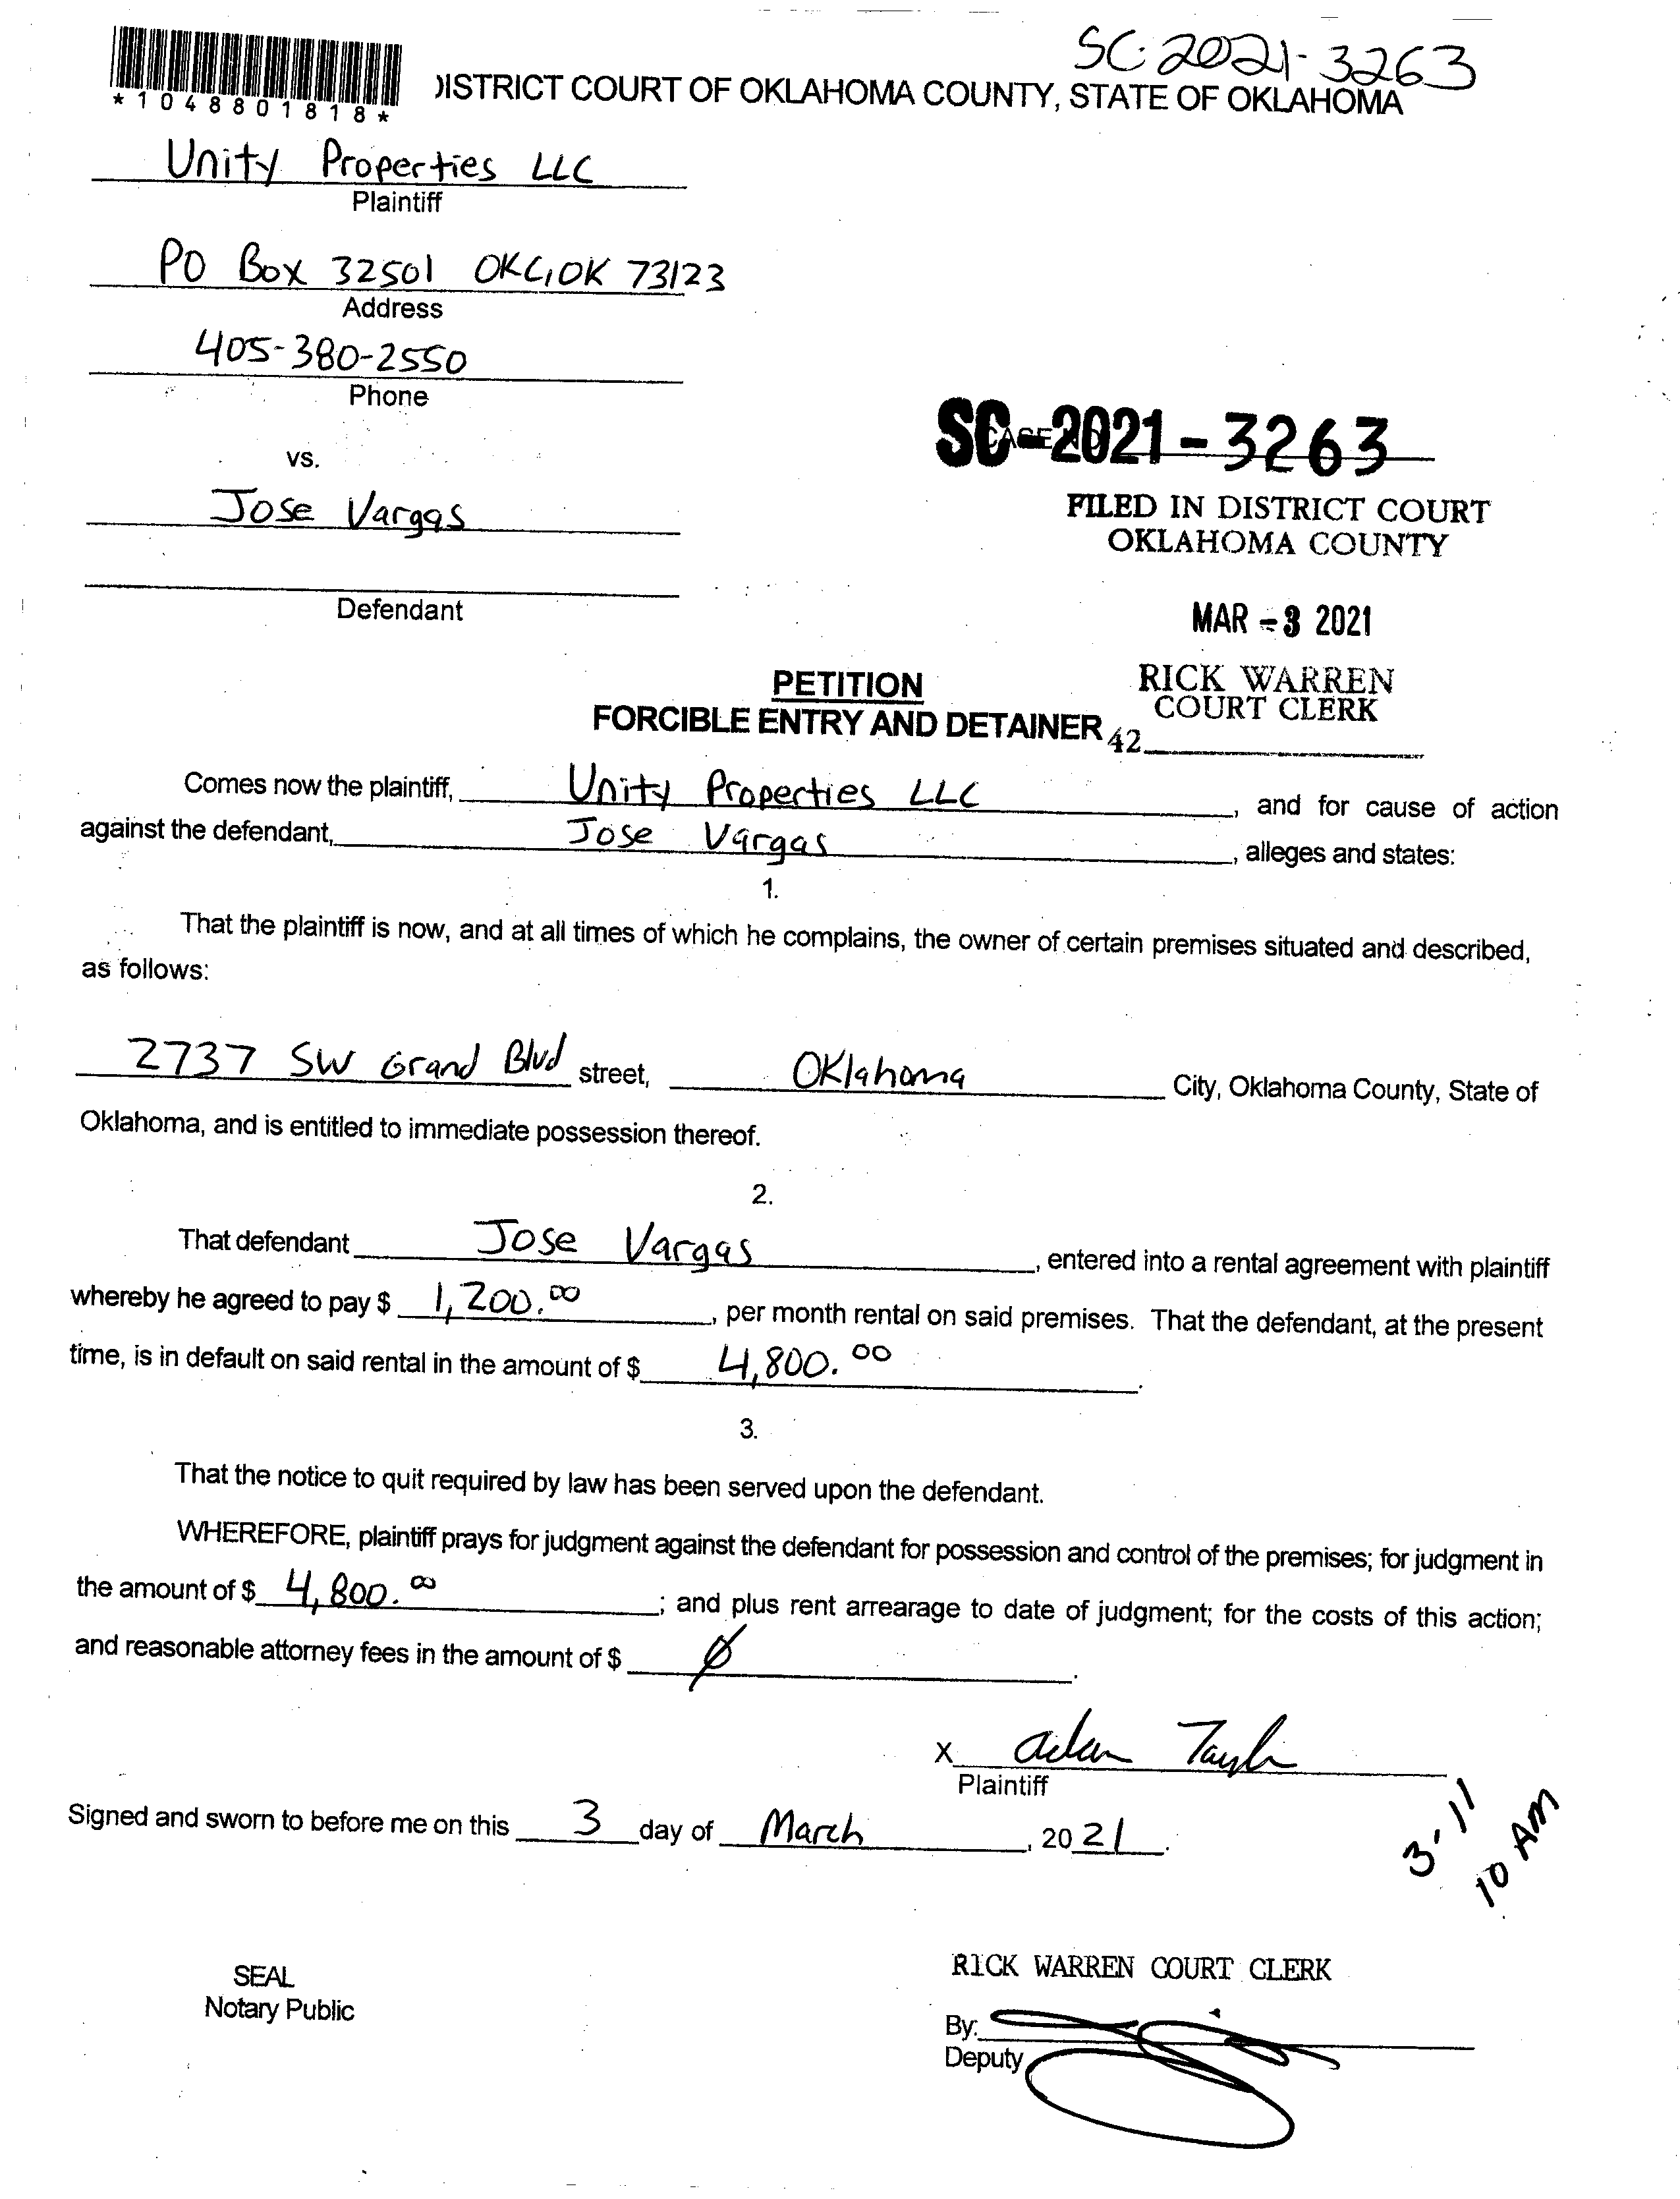 SC-2021-3263
*1048801818*
DISTRICT COURT OF OKLAHOMA COUNTY, STATE OF OKLAHOMA
Unity Properties LLC
Plaintiff
PO Box 32501 OKC, OK 73123
Address
405-380-2550
Phone
vs.
SC-2021-3263
Jose Vargas
FILED IN DISTRICT COURT
OKLAHOMA COUNTY
Defendant
MAR -3 2021
PETITION
RICK WARREN
COURT CLERK
FORCIBLE ENTRY AND DETAINER
42
Comes now the plaintiff, Unity Properties LLC, and for cause of action
against the defendant, Jose Vargas, alleges and states:
1.
That the plaintiff is now, and at all times of which he complains, the owner of certain premises situated and described,
as follows:
2737 SW Grand Blvd street, Oklahoma City, Oklahoma County, State of
Oklahoma, and is entitled to immediate possession thereof.
2.
That defendant Jose Vargas, entered into a rental agreement with plaintiff
whereby he agreed to pay $ 1,200.00, per month rental on said premises. That the defendant, at the present
time, is in default on said rental in the amount of $ 4,800.00.
3.
That the notice to quit required by law has been served upon the defendant.
WHEREFORE, plaintiff prays for judgment against the defendant for possession and control of the premises; for judgment in
the amount of $ 4,800.00; and plus rent arrearage to date of judgment; for the costs of this action;
and reasonable attorney fees in the amount of $ ∅.
X Adam Taylor
Plaintiff
Signed and sworn to before me on this 3 day of March, 2021.
3-11
10 AM
SEAL
Notary Public
RICK WARREN COURT CLERK
By:
Deputy